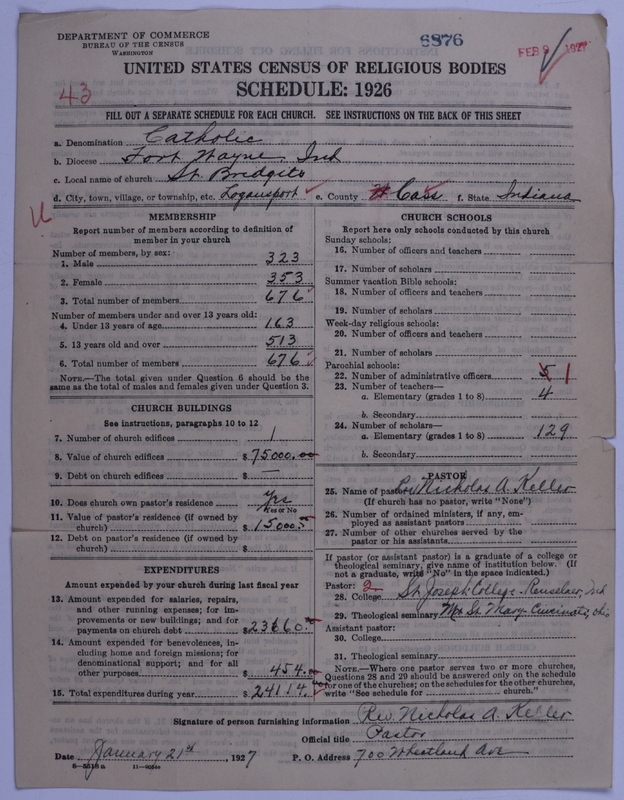 DEPARTMENT OF COMMERCE
BUREAU OF THE CENSUS
WASHINGTON
6876
FEB 9 1927
UNITED STATES CENSUS OF RELIGIOUS BODIES
SCHEDULE: 1926
43
FILL OUT A SEPARATE SCHEDULE FOR EACH CHURCH. SEE INSTRUCTIONS ON THE BACK OF THIS SHEET
a. Denomination Catholic
b. Diocese Fort Wayne Ind
c. Local name of church St Bridgets
d. City, town, village, or township, etc. Logansport e. County Cass f. State Indiana
MEMBERSHIP
Report number of members according to definition of
member in your church
Number of members, by sex:
1. Male 323
2. Female 353
3. Total number of members 676
Number of members under and over 13 years old:
4. Under 13 years of age 163
5. 13 years old and over 513
6. Total number of members 676
NOTE.—The total given under Question 6 should be the
same as the total of males and females given under Question 3.
CHURCH BUILDINGS
See instructions, paragraphs 10 to 12
7. Number of church edifices 1
8. Value of church edifices $75000.00
9. Debt on church edifices $ —
10. Does church own pastor's residence Yes
Yes or No
11. Value of pastor's residence (if owned by
church) $15000.
12. Debt on pastor's residence (if owned by
church) $
EXPENDITURES
Amount expended by your church during last fiscal year
13. Amount expended for salaries, repairs,
and other running expenses; for im-
provements or new buildings; and for
payments on church debt $23660.
14. Amount expended for benevolences, in-
cluding home and foreign missions; for
denominational support; and for all
other purposes $454.
15. Total expenditures during year $24114.
CHURCH SCHOOLS
Report here only schools conducted by this church
Sunday schools:
16. Number of officers and teachers
17. Number of scholars
Summer vacation Bible schools:
18. Number of officers and teachers
19. Number of scholars
Week-day religious schools:
20. Number of officers and teachers
21. Number of scholars
Parochial schools:
22. Number of administrative officers 5 1
23. Number of teachers—
a. Elementary (grades 1 to 8) 4
b. Secondary
24. Number of scholars—
a. Elementary (grades 1 to 8) 129
b. Secondary
PASTOR
25. Name of pastor Rev Nicholas A. Keller
(If church has no pastor, write "None")
26. Number of ordained ministers, if any, em-
ployed as assistant pastors
27. Number of other churches served by the
pastor or his assistants
If pastor (or assistant pastor) is a graduate of a college or
theological seminary, give name of institution below. (If
not a graduate, write "No" in the space indicated.)
Pastor: 2
28. College St Joseph College Rensselaer, Ind
29. Theological seminary Mt St Mary Cincinnati, Ohio
Assistant pastor:
30. College
31. Theological seminary
NOTE.—Where one pastor serves two or more churches,
Questions 28 and 29 should be answered only on the schedule
for one of the churches; on the schedules for the other churches,
write "See schedule for church."
Signature of person furnishing information Rev. Nicholas A. Keller
Official title Pastor
Date January 21st, 1927 P. O. Address 700 Wheatland Ave